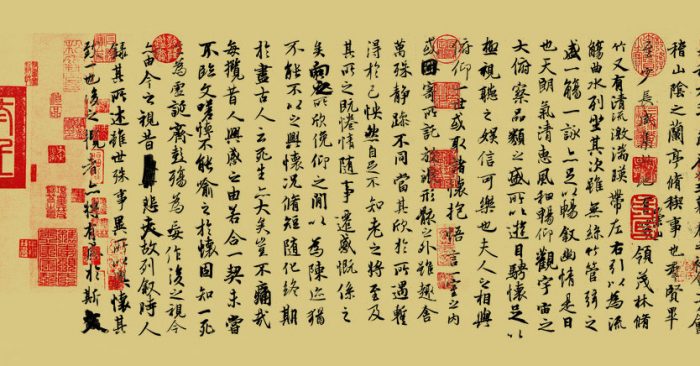 稽山陰之蘭亭脩稧事也羣賢畢
至少長咸集此地領茂林脩
竹又有清流激湍暎帶左右引以為流
觴曲水列坐其次雖無絲竹管弦之
盛一觴一詠亦足以暢敘幽情是日
也天朗氣清惠風和暢仰觀宇宙之
大俯察品類之盛所以遊目騁懷足以
極視聽之娛信可樂也夫人之相與
俯仰一世或取諸懷抱悟言一室之內
或因寄所託放浪形骸之外雖趣舍
萬殊靜躁不同當其欣於所遇暫
得於己快然自足不知老之將至及
其所之既惓情隨事遷感慨係之
矣向之所欣俛仰之閒以為陳迹猶
不能不以之興懷況脩短隨化終期
於盡古人云死生亦大矣豈不痛哉
每攬昔人興感之由若合一契未嘗
不臨文嗟悼不能喻之於懷固知一死
生為虛誕齊彭殤為妄作後之視今
亦由今之視昔悲夫故列敘時人
錄其所述雖世殊事異所以興懷其
致一也後之攬者亦將有感於斯文